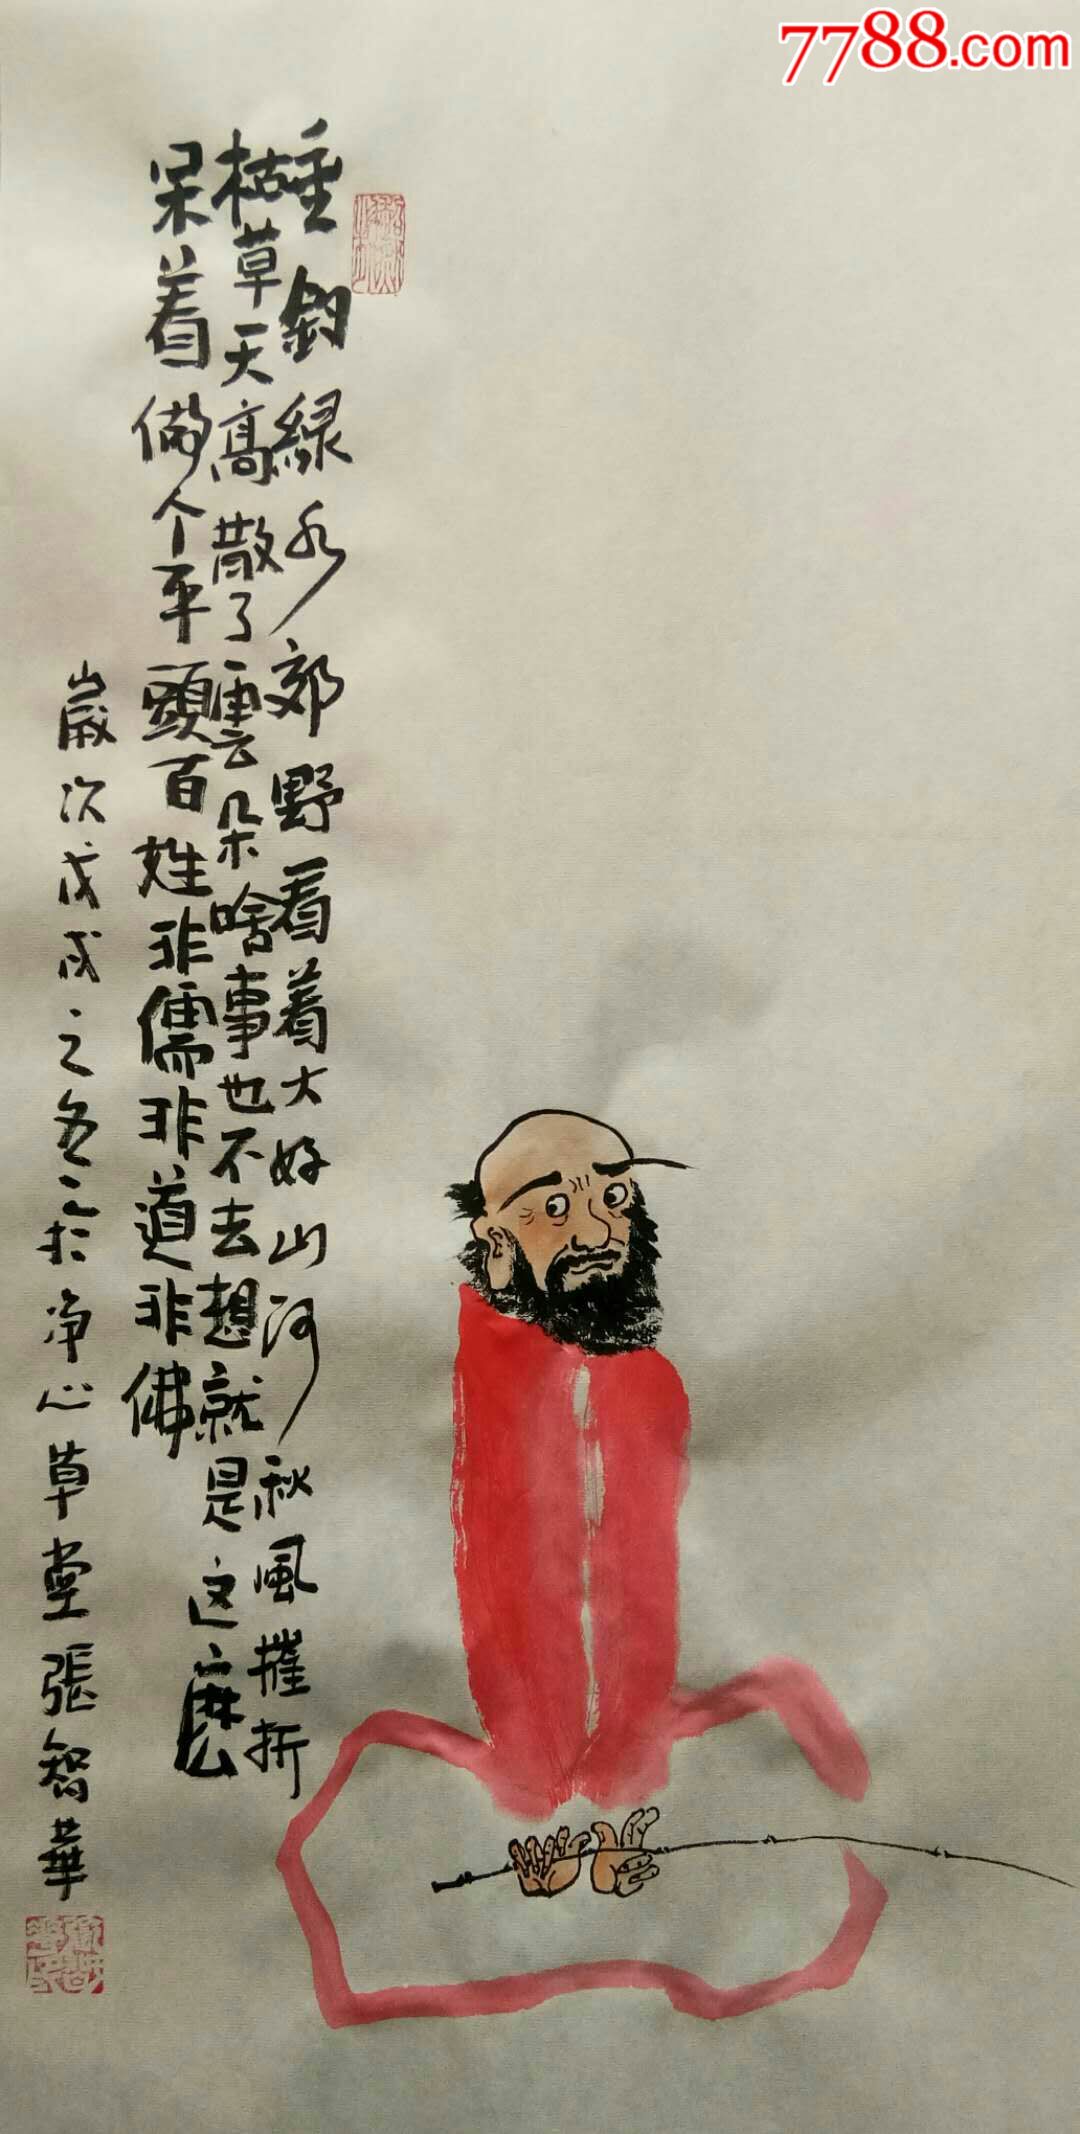 7788.com
垂釣綠水郊野看着大好山河秋風摧折
枯草天高散了雲朵啥事也不去想就是这麽
呆着做个平頭百姓非儒非道非佛
歲次戊戌之冬於净心草堂張智華